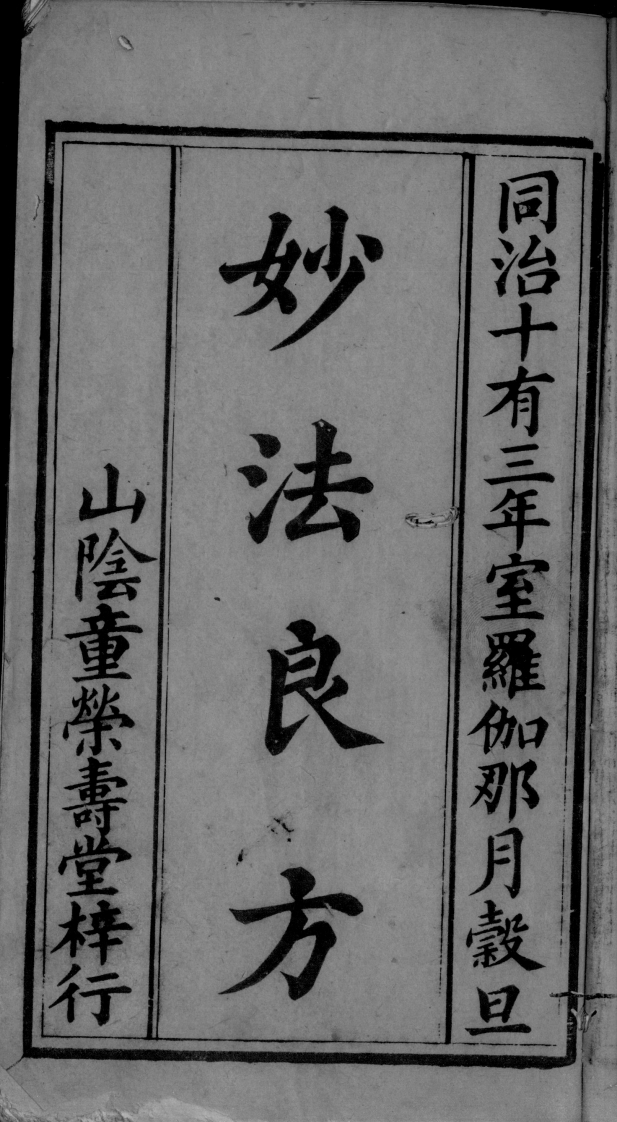 同治十有三年室羅伽那月穀旦
妙法良方
山陰童榮壽堂梓行